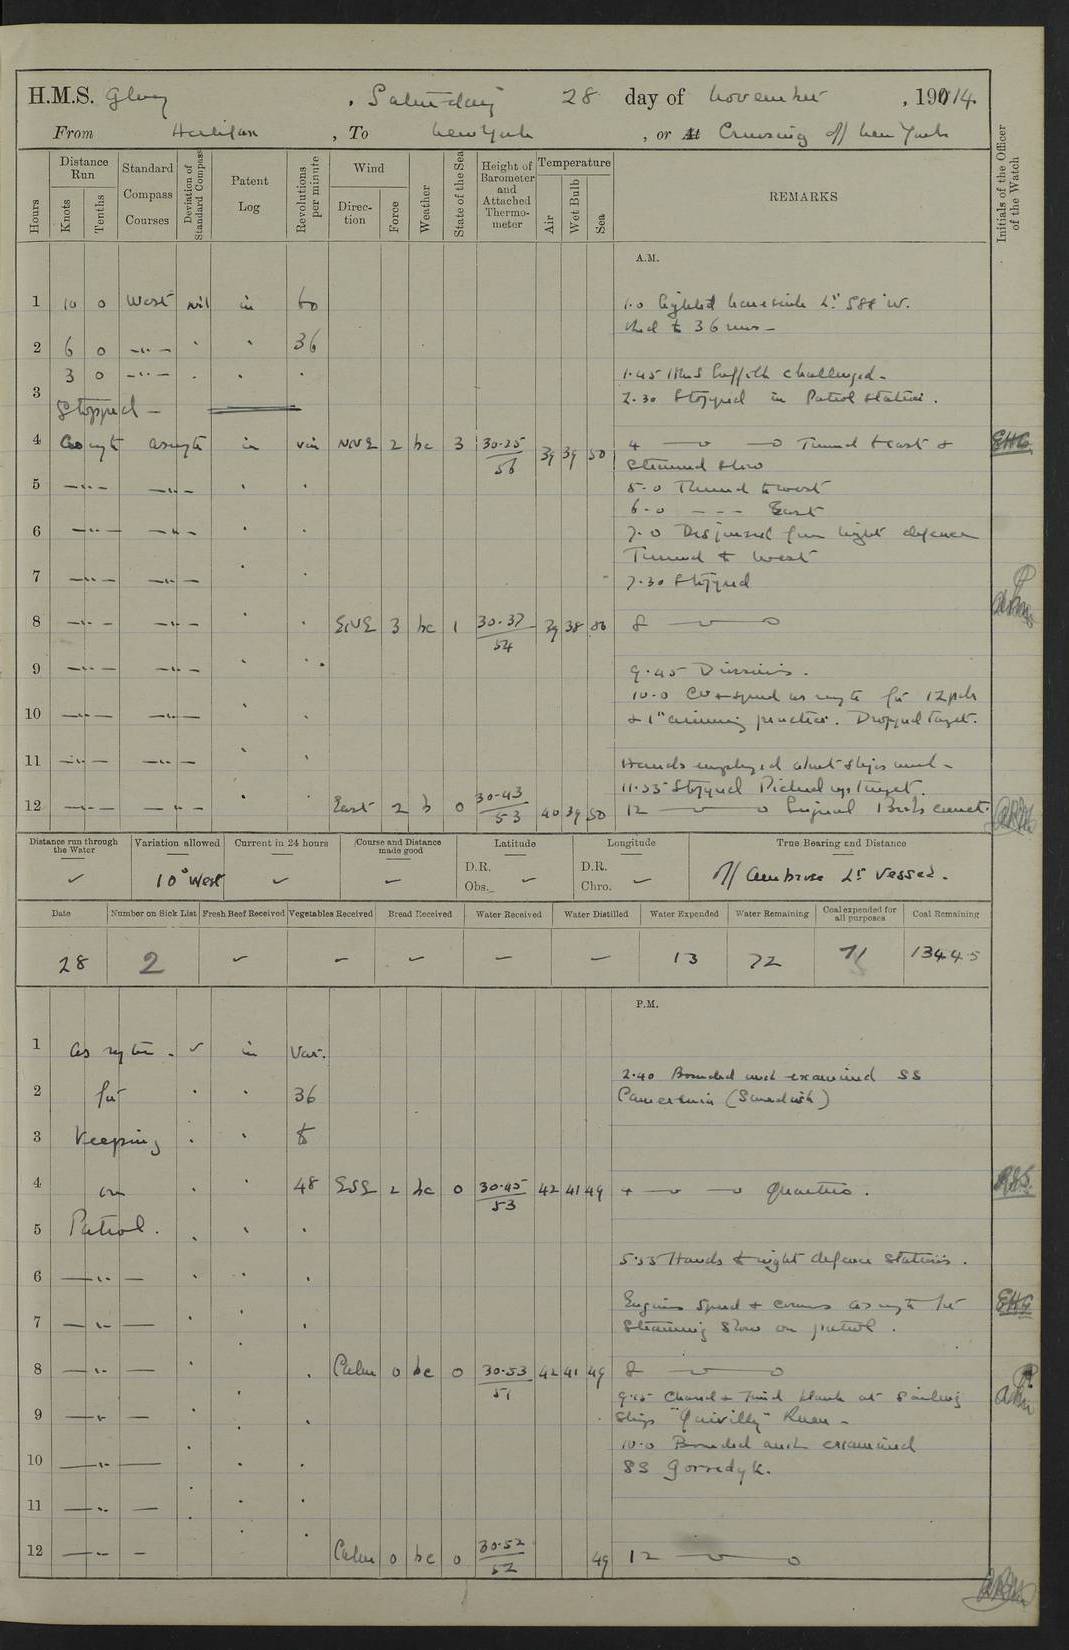 H.M.S. Glory, Saturday 28 day of November, 1914.
From Halifax, To New York, or At Cruising off New York
Hours
Distance Run
Knots
Tenths
Standard Compass Courses
Deviation of Standard Compass
Patent Log
Revolutions per minute
Wind
Direction
Force
Weather
State of the Sea
Height of Barometer and Attached Thermometer
Temperature
Air
Wet Bulb
Sea
REMARKS
Initials of the Officer of the Watch
A.M.
1 10 0 West nil in 60
1.0 Sighted Lt S88°W.
to 36 revs -
2 6 0 -"- " " 36
3 0 -"- . . .
1.45 HMS Suffolk challenged.
3 Stopped -
2.30 Stopped in Patrol station.
4 As reqte as reqte in var NNE 2 bc 3 30.25/56 39 39 50
4 Turned to East &
Steamed slow
5 -"- -"- " .
5.0 Turned to West
6.0 - - - East
6 -"- -"- " .
7.0 Dispersed from night defence
Turned to West
7 -"- -"- " .
7.30 Stopped
8 -"- -"- " . ENE 3 bc 1 30.37/54 39 38 50
8
9 -"- -"- " "
9.45 Divisions.
10.0 Co & speed as reqte for 12 pdr
10 -"- -"- " .
& 1" aiming practice. Dropped target.
11 -"- -"- " .
Hands employed about ships work -
11.55 Stopped Picked up target.
12 -"- -"- " . East 2 b 0 30.43/53 40 39 50
12 Signal Books correct.
Distance run through the Water
Variation allowed
Current in 24 hours
Course and Distance made good
Latitude
Longitude
True Bearing and Distance
✓ 10° West ✓ ✓ D.R. Obs. ✓ D.R. Chro. ✓ Off Ambrose Lt Vessel.
Date
Number on Sick List
Fresh Beef Received
Vegetables Received
Bread Received
Water Received
Water Distilled
Water Expended
Water Remaining
Coal expended for all purposes
Coal Remaining
28 2 ✓ ✓ ✓ ✓ ✓ 13 72 71 1344.5
P.M.
1 As reqte. ✓ in Var.
2.40 Boarded and examined SS
2 for . . 36
(Swedish)
3 Keeping . . 8
4 on . . 48 ESE 2 bc 0 30.45/53 42 41 49
4 Quarters.
5 Patrol. . . .
5.55 Hands to night defence stations.
6 -"- . . .
Engines Speed & courses as reqte for
7 -"- . . .
Steaming slow on patrol.
8 -"- . . . Calm 0 bc 0 30.53/51 42 41 49
8
9.15 Chased & fired blank at Sailing
9 -"- . . .
Ship "Quevilly" Rouen -
10.0 Boarded and examined
10 -"- . . .
SS Gorredyk.
11 -"- . . .
12 -"- . . . Calm 0 bc 0 30.52/52 49
12